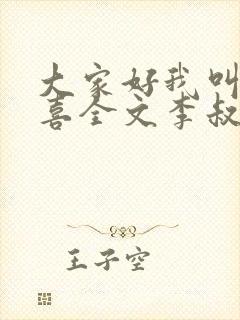 大家好我叫
喜全文李叔
王子空